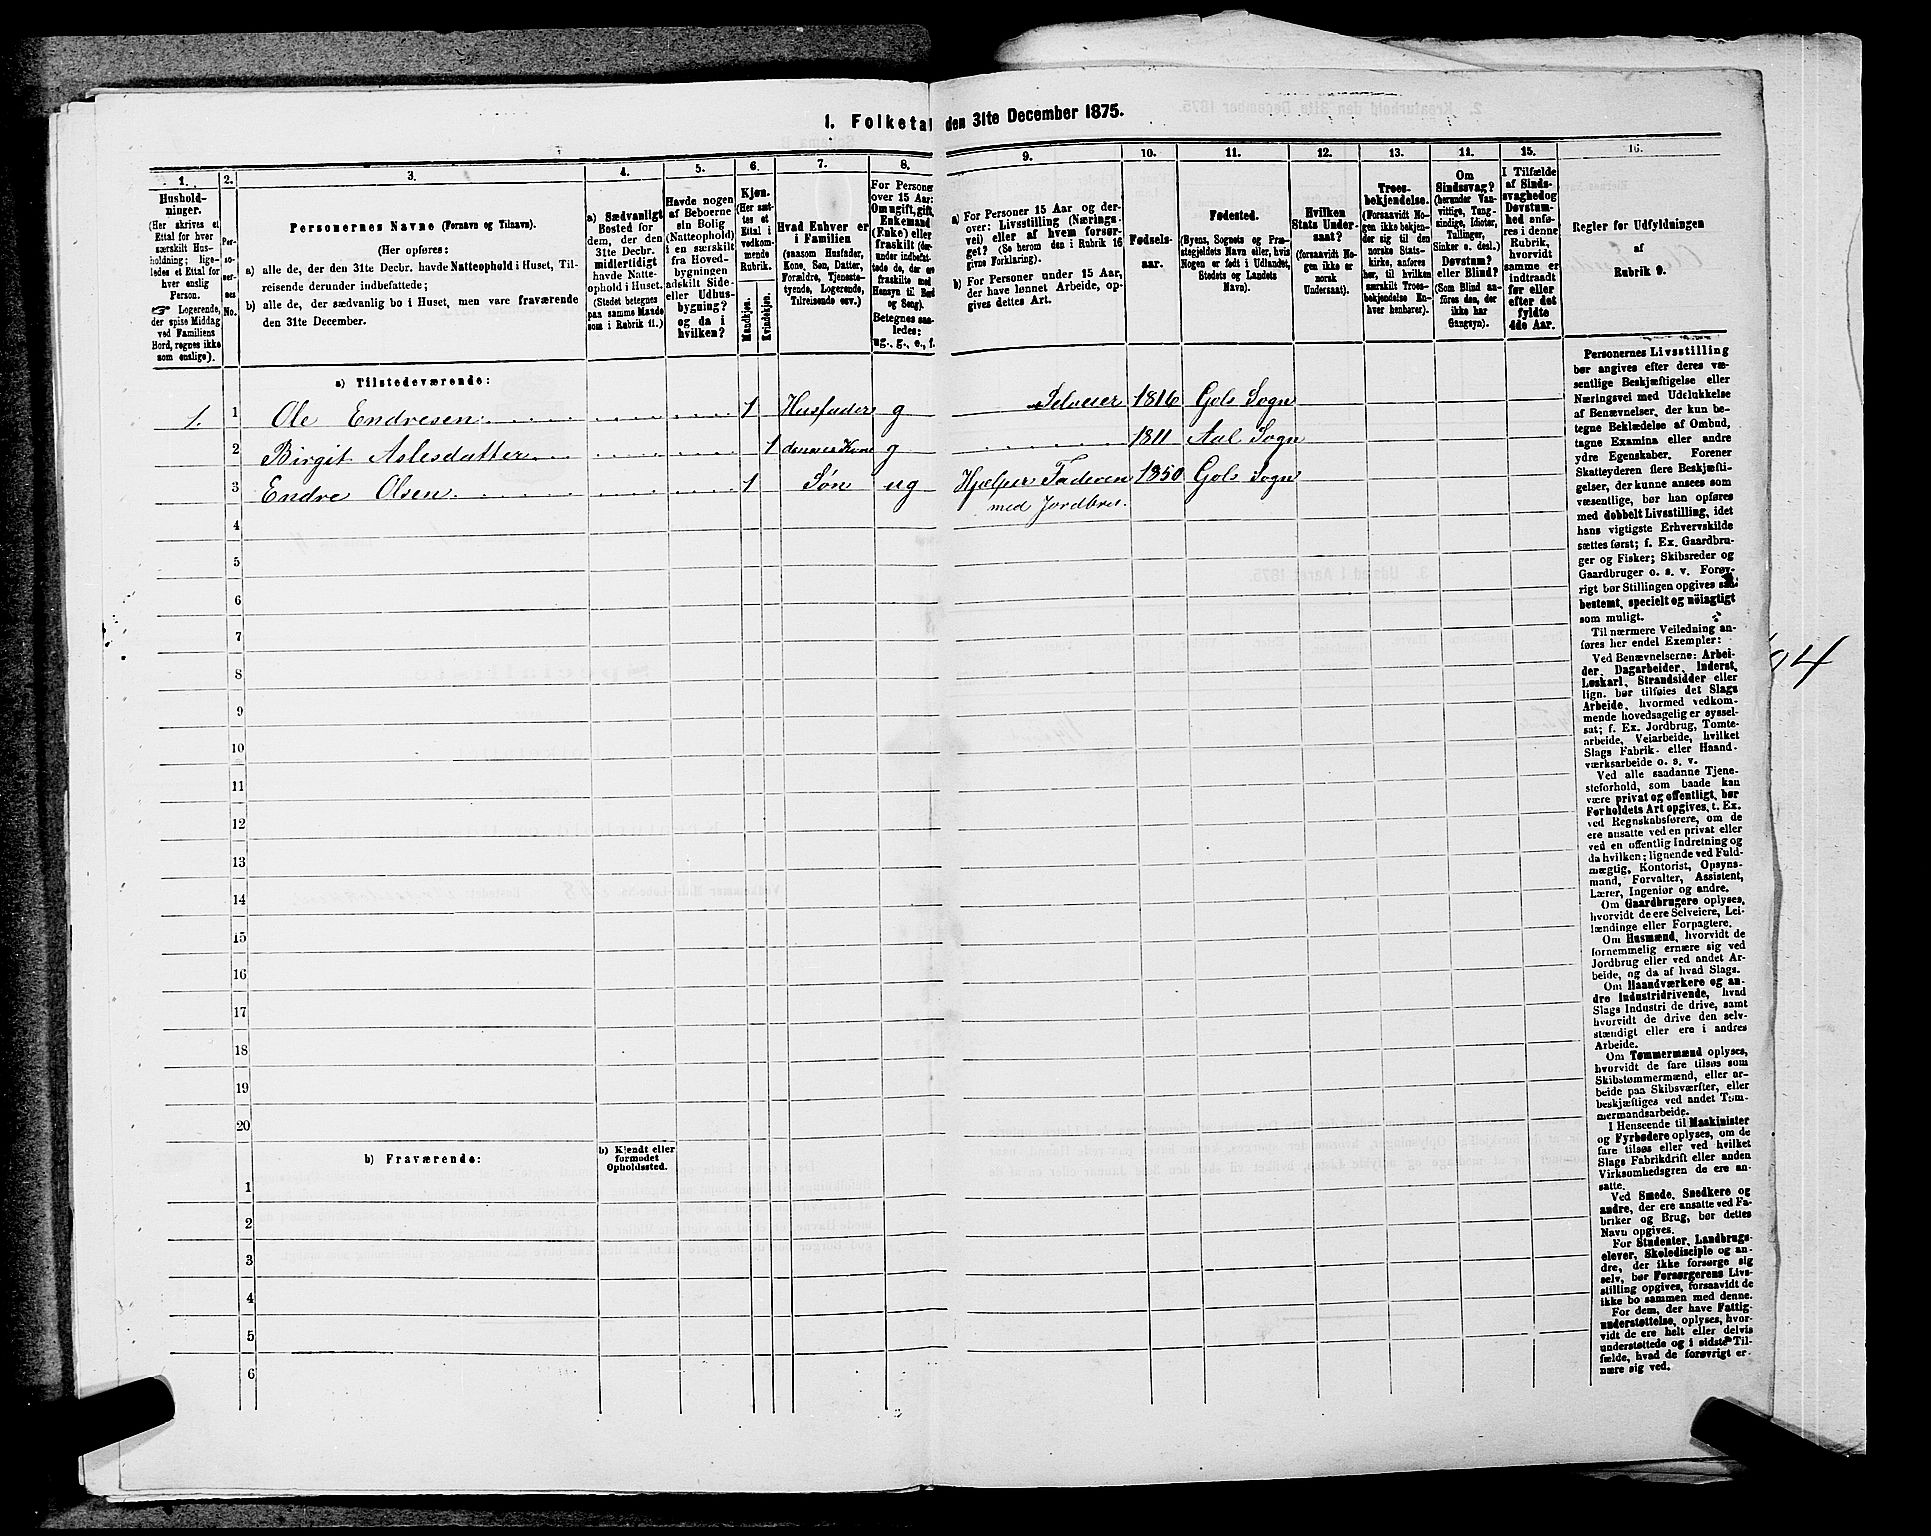 1. Folketal den 31te December 1875.
1. 2. 3. 4. 5. 6. 7. 8. 9. 10. 11. 12. 13. 14. 15. 16.
Hushold-
ninger.
(Her skrives et
Ettal for hver
særskilt Hus-
holdning; lige-
ledes et Ettal for
hver enslig
Person.
☞ Logerende,
der spise Middag
ved Familiens
Bord, regnes ikke
som enslige).
Per-
so-
ner-
nes
No.
Personernes Navne (Fornavn og Tilnavn).
(Her opføres:
a) alle de, der den 31te Decbr. havde Natteophold i Huset, Til-
reisende derunder indbefattede;
b) alle de, der sædvanlig bo i Huset, men vare fraværende
den 31te December.
a) Sædvanligt
Bosted for
dem, der den
31te Decbr.
midlertidigt
havde Natte-
ophold i Huset.
(Stedet betegnes
paa samme Maade
som i Rubrik 11.)
Havde nogen
af Beboerne
sin Bolig
(Natteophold)
i en særskilt
fra Hoved-
bygningen
adskilt Side-
eller Udhus-
bygning?
og da i
hvilken?
Kjøn.
(Her sæt-
tes et
Ettal i
vedkom-
mende
Rubrik.
Mandkjøn.
Kvindekjøn.
Hvad Enhver er
i Familien
(saasom Husfader,
Kone, Søn, Datter,
Forældre, Tjeneste-
tyende, Logerende,
Tilreisende osv.)
For Personer
over 15 Aar:
Om ugift, gift,
Enkemand
(Enke) eller
fraskilt (der-
under indbefat-
tede de, der ere
fraskilte med
Hensyn til Bord
og Seng).
Betegnes saa-
ledes:
ug., g., e., f.
a) For Personer 15 Aar og der-
over: Livsstilling (Nærings-
vei) eller af hvem forsør-
get? (Se herom den i Rubrik 16
givne Forklaring).
b) For Personer under 15 Aar,
der have lønnet Arbeide, op-
gives dettes Art.
Fødsels-
aar.
Fødested.
(Byens, Sognets og Præ-
stegjeldets Navn eller, hvis
Nogen er født i Udlandet,
Stedets og Landets
Navn).
Hvilken
Stats Under-
saat?
(forsaavidt No-
gen ikke er
norsk
Undersaat).
Troes-
bekjendelse.
(Forsaavidt No-
gen ikke bekjen-
der sig til den
norske Stats-
kirke, anføres
her, til hvilken
særskilt Troes-
bekjendelse En-
hver henhører).
Om
Sindssvag?
(herunder Van-
vittige, Tung-
sindige, Idioter,
Tullinger,
Sinker o. desl.)
Døvstum?
eller Blind?
(Som Blind an-
føres den, der
ikke har
Gangsyn).
I Tilfælde
af Sinds-
svaghed og
Døvstum-
hed anfø-
res i denne
Rubrik,
hvorvidt
samme er
indtraadt
før eller
efter det
fyldte
4de Aar.
Regler for Udfyldningen
af
Rubrik 9.
a) Tilstedeværende:
1. 1 Ole Endresen 1 Husfader g Selveier 1816 Gols Sogn
2 Birgit Aslesdatter 1 dennes Kone g 1811 Aal Sogn
3 Endre Olsen 1 Søn ug Hjælper Faderen 1850 Gols Sogn
med Jordbrug.
4
5
6
7
8
9
10
11
12
13
14
15
16
17
18
19
20
b) Fraværende:
b) Kjendt eller
formodet
Opholdssted.
1
2
3
4
5
6
Personernes Livsstilling
bør angives efter deres væ-
sentlige Beskjæftigelse eller
Næringsvei med Udelukkelse
af Benævnelser, der kun be-
tegne Beklædelse af Ombud,
tagne Examina eller andre
ydre Egenskaber. Forener
Skatteyderen flere Beskjæfti-
gelser, der kunne ansees som
væsentlige, bør han opføres
med dobbelt Livsstilling, idet
hans vigtigste Erhvervskilde
sættes først; f. Ex. Gaardbru-
ger og Fisker; Skibsreder og
Gaardbruger o. s. v. Forøv-
rigt bør Stillingen opgives saa
bestemt, specielt og nöiagtigt
som muligt.
Til nærmere Veiledning an-
føres her endel Exempler:
Ved Benævnelserne: Arbei-
der, Dagarbeider, Inderst,
Løskarl, Strandsidder eller
lign. bør tilføies det Slags
Arbeide, hvormed vedkom-
mende hovedsagelig er syssel-
sat; f. Ex. Jordbrug, Tomte-
arbeide, Veiarbeide, hvilket
Slags Fabrik- eller Haand-
værksarbeide o. s. v.
Ved alle saadanne Tjene-
steforhold, som baade kan
være privat og offentligt, bør
Forholdets Art opgives, t. Ex.
ved Regnskabsførere, om de
ere ansatte ved en privat eller
ved en offentlig Indretning og
da hvilken; lignende ved Fuld-
mægtig, Kontorist, Opsyns-
mand, Forvalter, Assistent,
Lærer, Ingeniør og andre.
Om Gaardbrugere oplyses,
hvorvidt de ere Selveiere, Lei-
lændinge eller Forpagtere.
Om Husmænd, hvorvidt de
fornemmelig ernære sig ved
Jordbrug eller ved andet Ar-
beide, og da af hvad Slags.
Om Haandværkere og an-
dre Industridrivende, hvad
Slags Industri de drive, samt
hvorvidt de drive den selv-
stændigt eller ere i andres
Arbeide.
Om Tømmermænd oplyses,
hvorvidt de fare tilsøs som
Skibstømmermænd, eller ar-
beide paa Skibsværfter, eller
beskjæftiges ved andet Tøm-
mermandsarbeide.
I Henseende til Maskinister
og Fyrbødere oplyses, om de
fare tilsøs eller ved hvilket
Slags Fabrikdrift eller anden
Virksomhedsgren de ere an-
satte.
Ved Smede, Snedkere og
andre, der ere ansatte ved Fa-
briker og Brug, bør dettes
Navn opgives.
For Studenter, Landbrugs-
elever, Skoledisciple og an-
dre, der ikke forsørge sig
selv, bør Forsørgerens Livs-
stilling opgives, forsaavidt de
ikke bo sammen med denne.
For dem, der have Fattig-
understøttelse, oplyses, hvor-
vidt de ere helt eller delvis
understøttede og i sidste Til-
fælde, hvad de forøvrigt er-
nære sig ved.